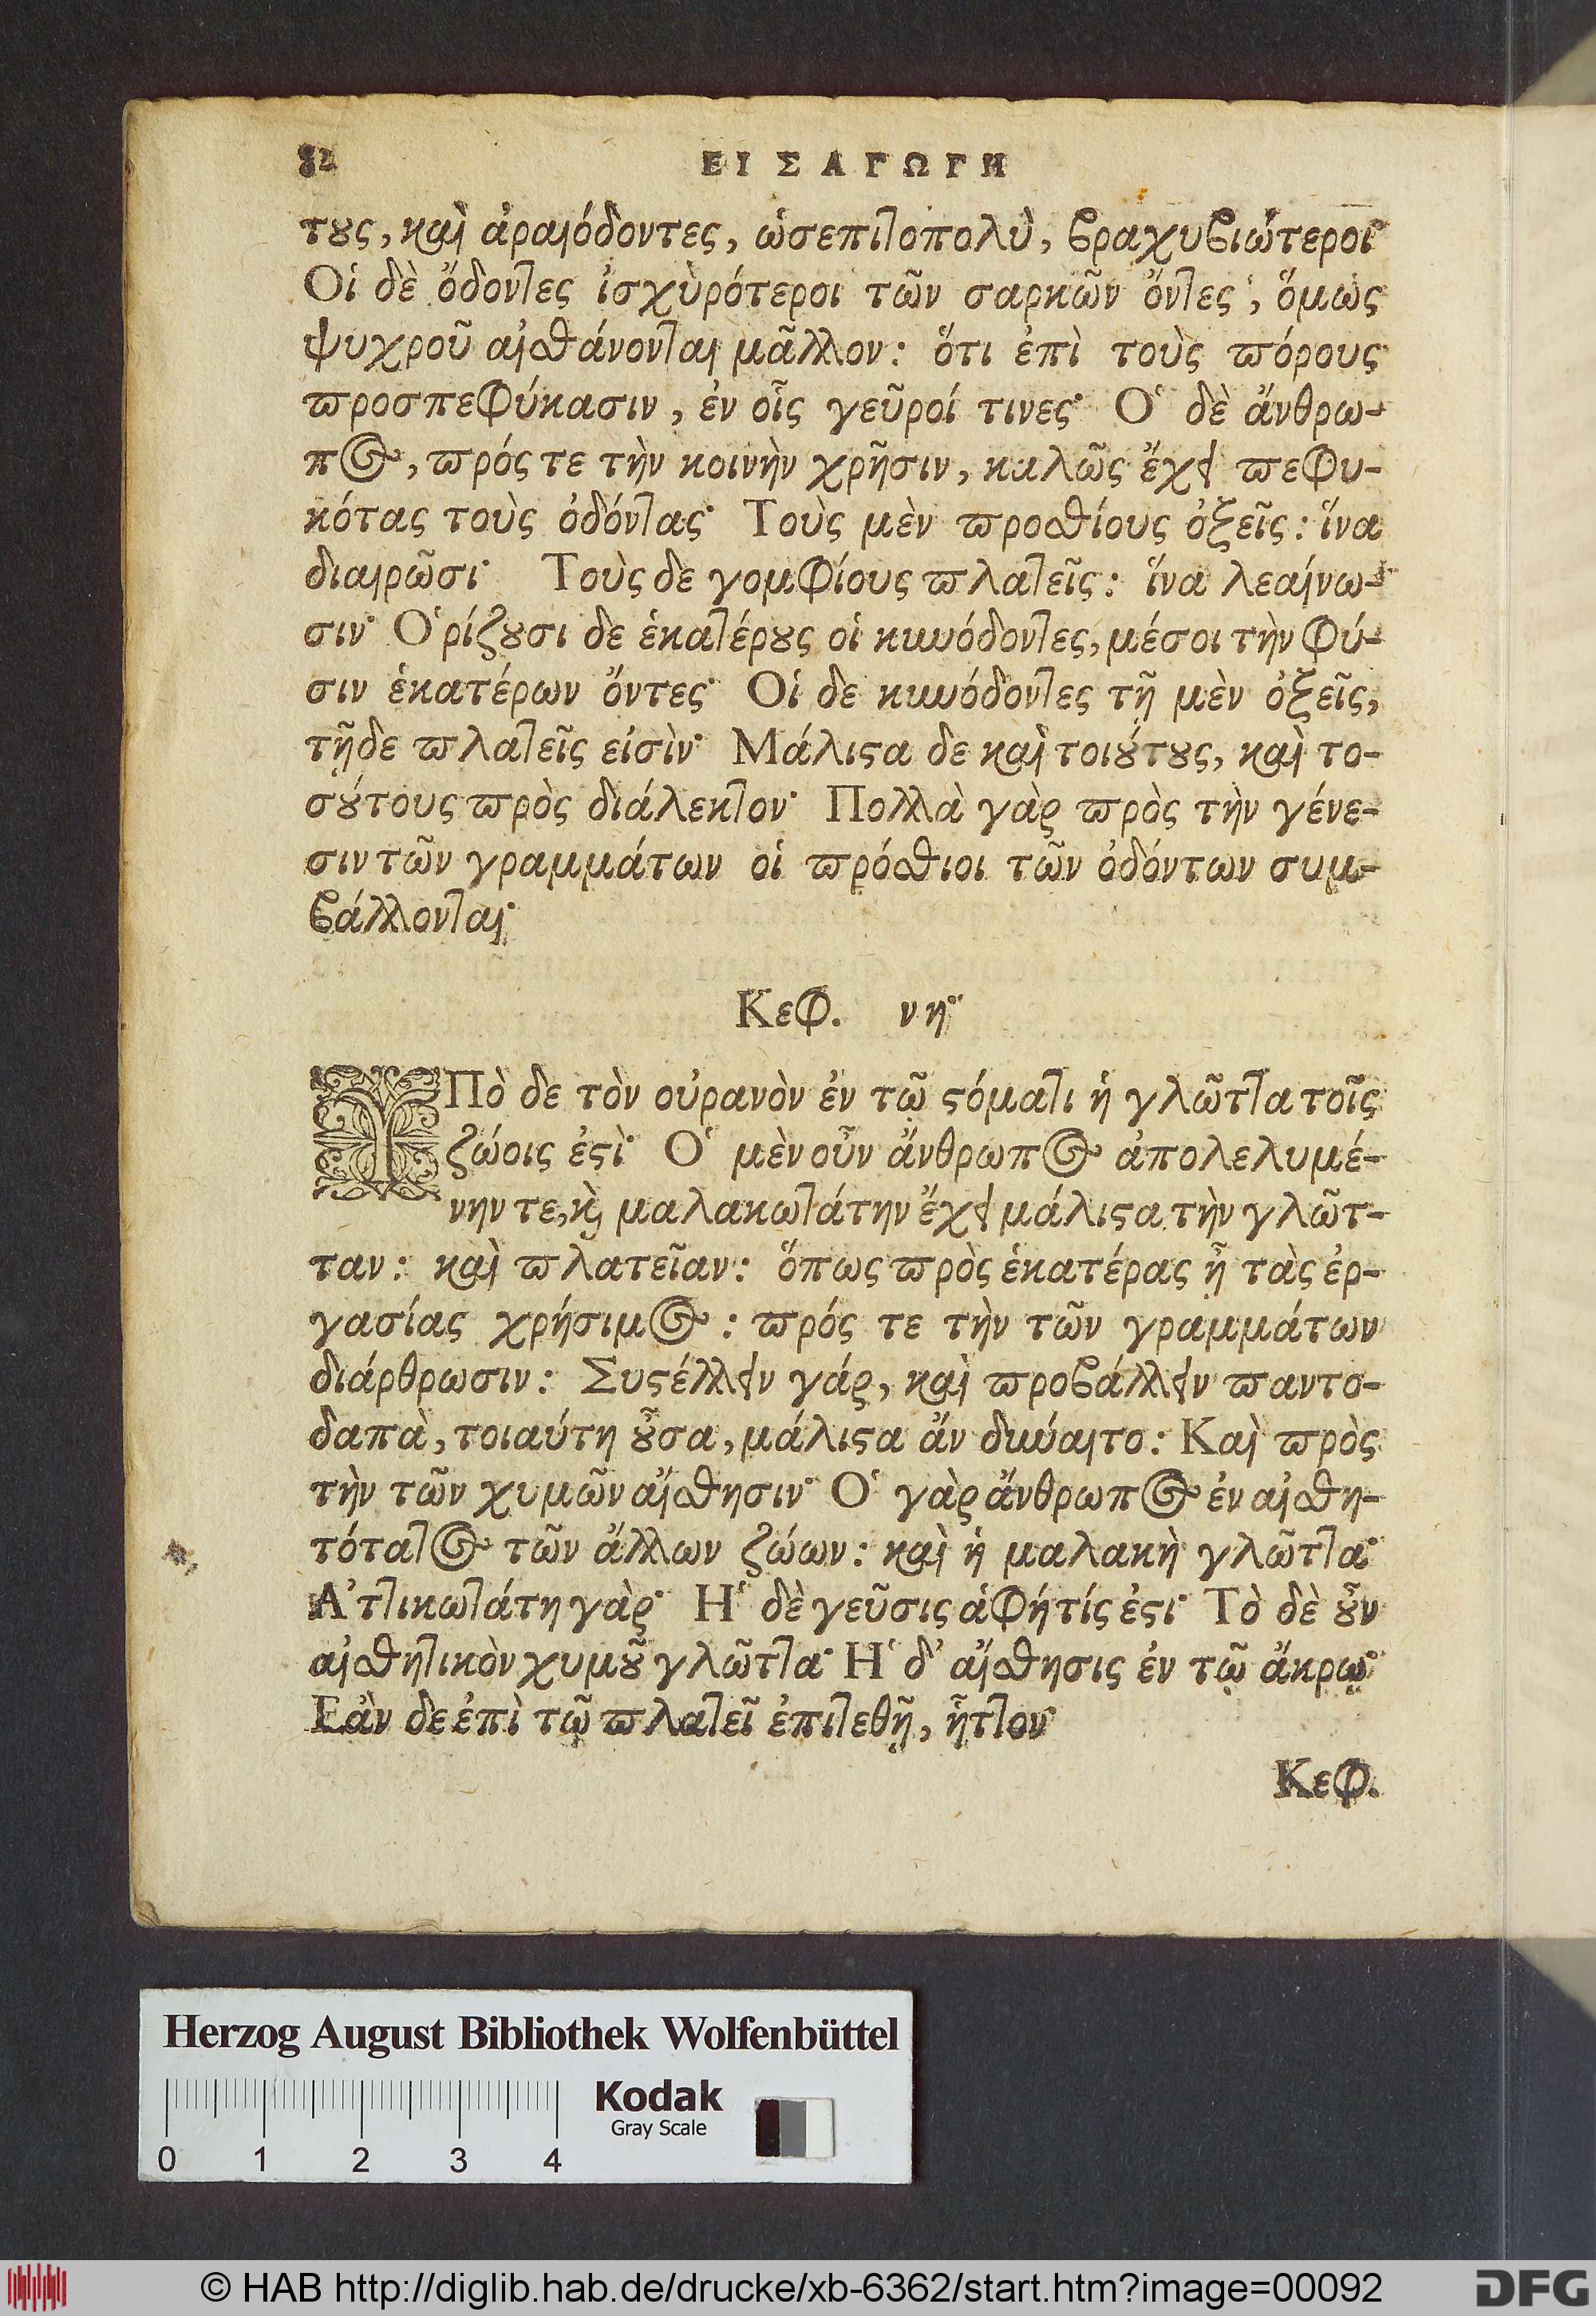 82 ΕΙΣΑΓΩΓΗ
τȣς, καὶ ἀραιόδοντες, ὡσεπιτοπολὺ, βραχυβιώτεροι·
Οἱ δὲ ὄδοντες ἰσχὺρότεροι τῶν σαρκῶν ὄντες, ὅμως
ψυχροῦ αἰσθάνονται μᾶλλον: ὅτι ἐπὶ τοὺς πόρους
προσπεφύκασιν, ἐν οἷς γεῦροί τινες· Ὁ δὲ ἄνθρω-
πος, πρός τε τὴν κοινὴν χρῆσιν, καλῶς ἔχει πεφυ-
κότας τοὺς ὀδόντας· Τοὺς μὲν προσθίους ὀξεῖς: ἵνα
διαιρῶσι· Τοὺς δε γομφίους πλατεῖς: ἵνα λεαίνω-
σιν· Ὁρίζȣσι δε ἑκατέρȣς οἱ κυνόδοντες, μέσοι τὴν φύ-
σιν ἑκατέρων ὄντες· Οἱ δε κυνόδοντες τῇ μὲν ὀξεῖς,
τῇδε πλατεῖς εἰσὶν· Μάλιϛα δε καὶ τοιȣ́τȣς, καὶ το-
σȣ́τους πρὸς διάλεκτον· Πολλὰ γὰρ πρὸς τὴν γένε-
σιν τῶν γραμμάτων οἱ πρόσθιοι τῶν ὀδόντων συμ-
βάλλονται·
Κεφ. νη·
ΥΠὸ δε τὸν οὐρανὸν ἐν τῷ ϛόματι ἡ γλῶττα τοῖς
ζώοις ἐϛὶ· Ὁ μὲν οὖν ἄνθρωπος ἀπολελυμέ-
νην τε, ϗ μαλακωτάτην ἔχει μάλιϛα τὴν γλῶτ-
ταν: καὶ πλατεῖαν: ὅπως πρὸς ἑκατέρας ᾖ τὰς ἐρ-
γασίας χρήσιμος: πρός τε τὴν τῶν γραμμάτων
διάρθρωσιν: Συϛέλλειν γάρ, καὶ προβάλλειν παντο-
δαπὰ, τοιαύτη ȣ̓͂σα, μάλιϛα ἄν δυναιτο: Καὶ πρὸς
τὴν τῶν χυμῶν αἴσθησιν· Ὁ γὰρ ἄνθρωπος ἐν αἰσθη-
τότατος τῶν ἄλλων ζώων: καὶ ἡ μαλακὴ γλῶττα·
Ἀττικωτάτη γὰρ· Ἡ δὲ γεῦσις ἁφήτίς ἐϛι· Τὸ δὲ ȣ̓͂ν
αἰσθητικὸν χυμȣ͂ γλῶττα· Ἡ δ᾽ αἴσθησις ἐν τῷ ἄκρῳ·
Ἐὰν δε ἐπὶ τῷ πλατεῖ ἐπιτεθῇ, ἧττον·
Κεφ.
Herzog August Bibliothek Wolfenbüttel
Kodak
Gray Scale
0 1 2 3 4
© HAB http://diglib.hab.de/drucke/xb-6362/start.htm?image=00092
DFG